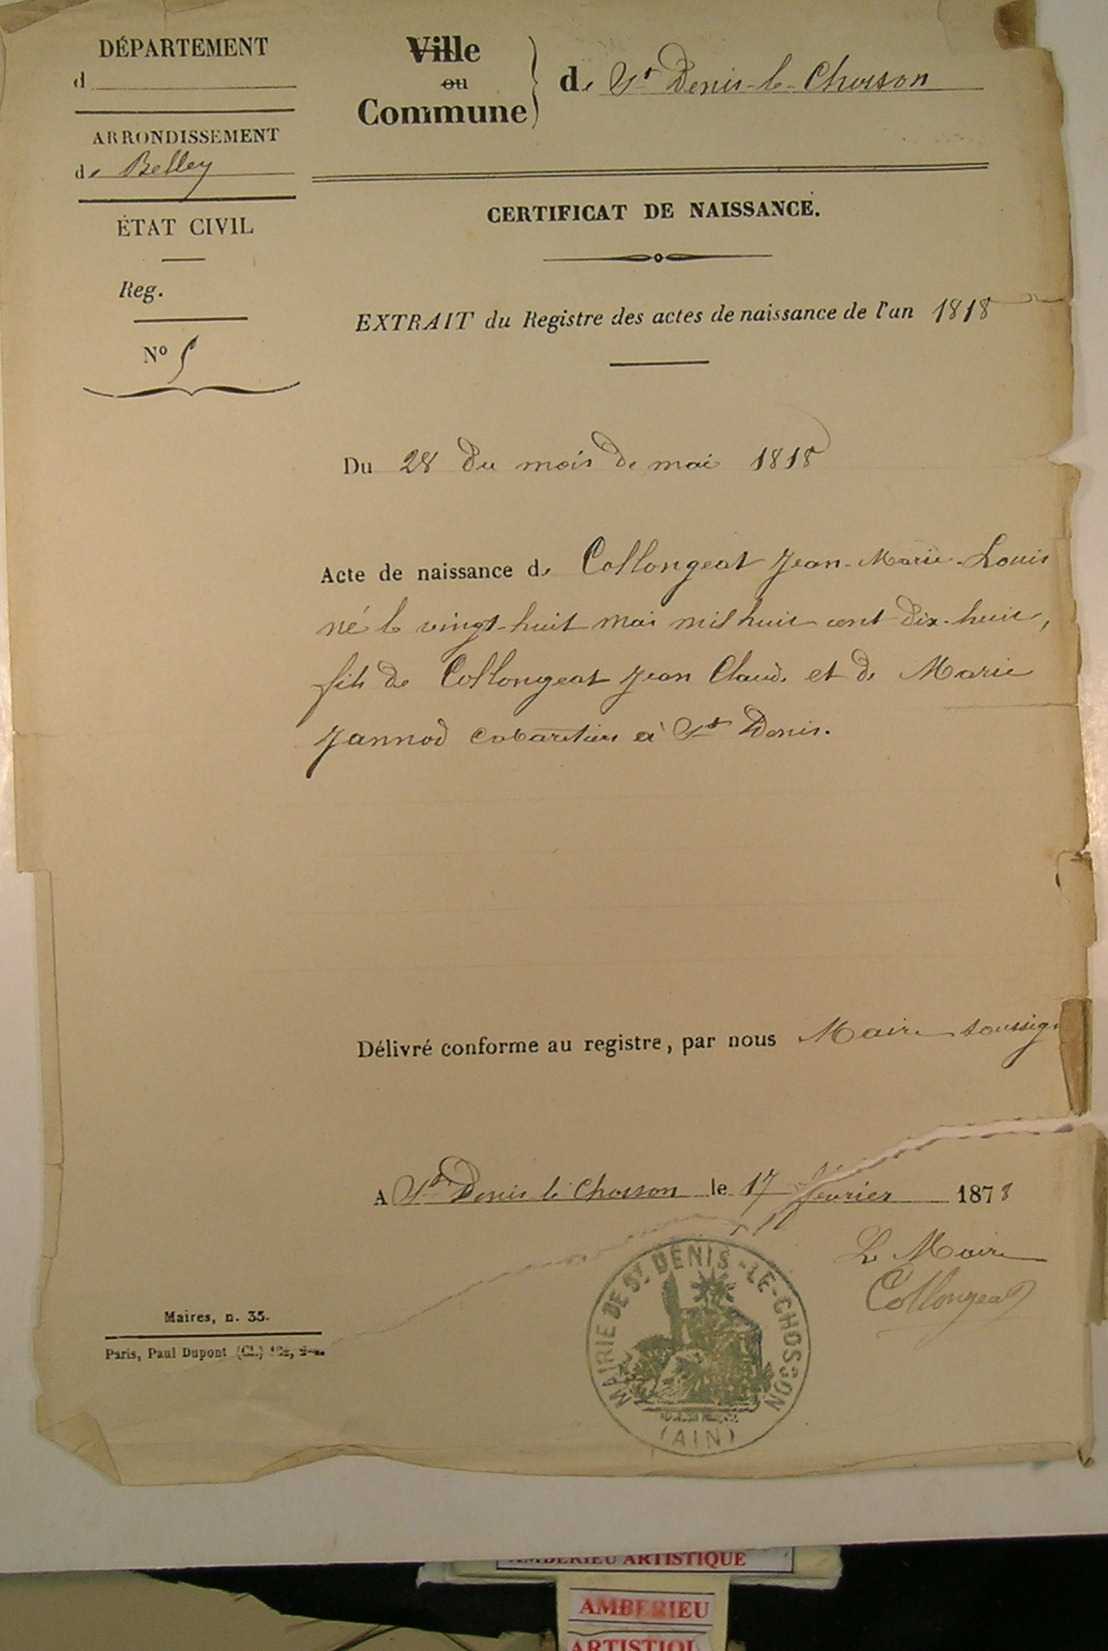 DÉPARTEMENT
d
ARRONDISSEMENT
de Belley
ÉTAT CIVIL
Reg.
Nº 5
Ville
ou
Commune
de St Denis-le-Chosson
CERTIFICAT DE NAISSANCE.
EXTRAIT du Registre des actes de naissance de l'an 1818
Du 28 du mois de mai 1818
Acte de naissance de Collongeat Jean-Marie-Louis
né le vingt-huit mai mil huit cent dix-huit,
fils de Collongeat Jean Claude et de Marie
Jannod cabaretiers à St Denis.
Délivré conforme au registre, par nous Maire soussig
A St Denis le Chosson le 17 février 1878
Le Maire
Collongeat
MAIRIE DE St DENIS-LE-CHOSSON
(AIN)
Maires, n. 35.
Paris, Paul Dupont (Cl.)
AMBERIEU ARTISTIQUE
AMBERIEU
ARTISTIQU